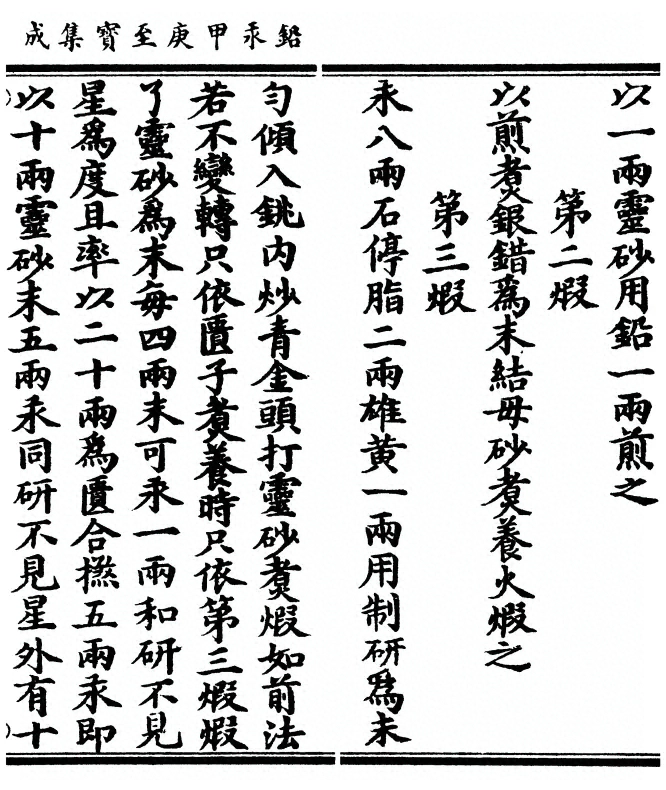 鉛汞甲庚至寳集成
以一兩靈砂用鉛一兩煎之
第二煆
以煎煑銀錯爲末結母砂煑養火煆之
第三煆
汞八兩石停脂二兩雄黄一兩用制研爲末
勻傾入銚内炒青金頭打靈砂煑煆如前法
若不變轉只依匱子煑養時只依第三煆煆
了靈砂爲末每四兩末可汞一兩和研不見
星爲度且率以二十兩爲匱合撚五兩汞即
以十兩靈砂末五兩汞同研不見星外有十